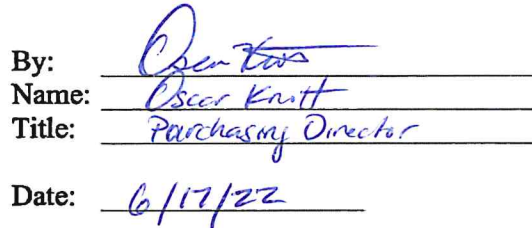 By: Oscar Knitt
Name: Oscar Knitt
Title: Purchasing Director
Date: 6/17/22